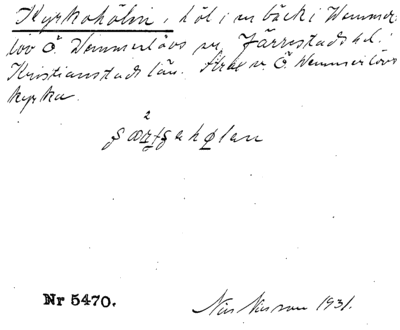 Kyrkohölin, höl i en bäck i Vemmer-
löv Ö. Vemmerlövs sn, Järrestads hd.
Kristianstads län. Strax v Ö. Vemmerlövs
kyrka.
Nr 5470.
Nils Nilsson 1931.